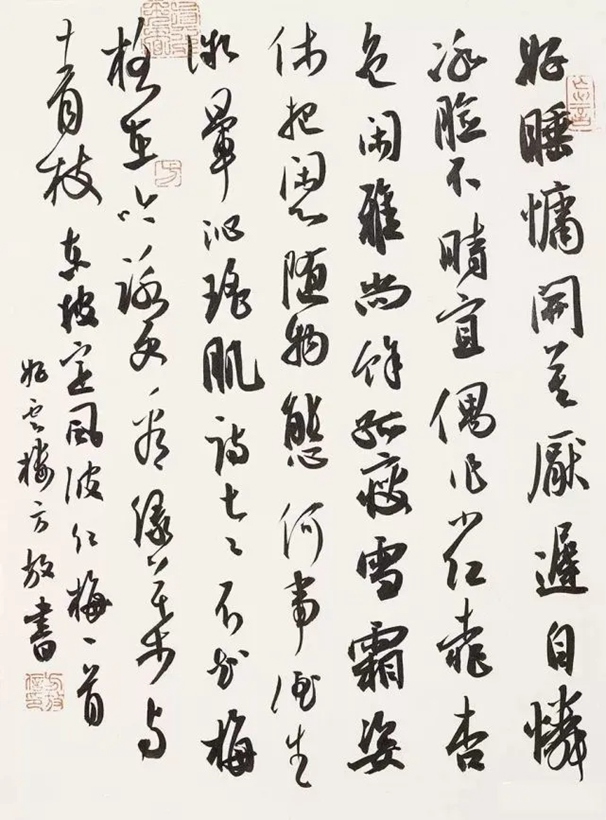 好睡慵開莫厭遲自憐
冰臉不時宜偶作小红桃杏
色闲雅尚餘孤瘦雪霜姿
休把闲心随物態何事酒生
微暈沁瑤肌詩老不知梅
格在吟詠更看绿葉与
青枝 東坡定風波红梅一首
好雲樓方放書